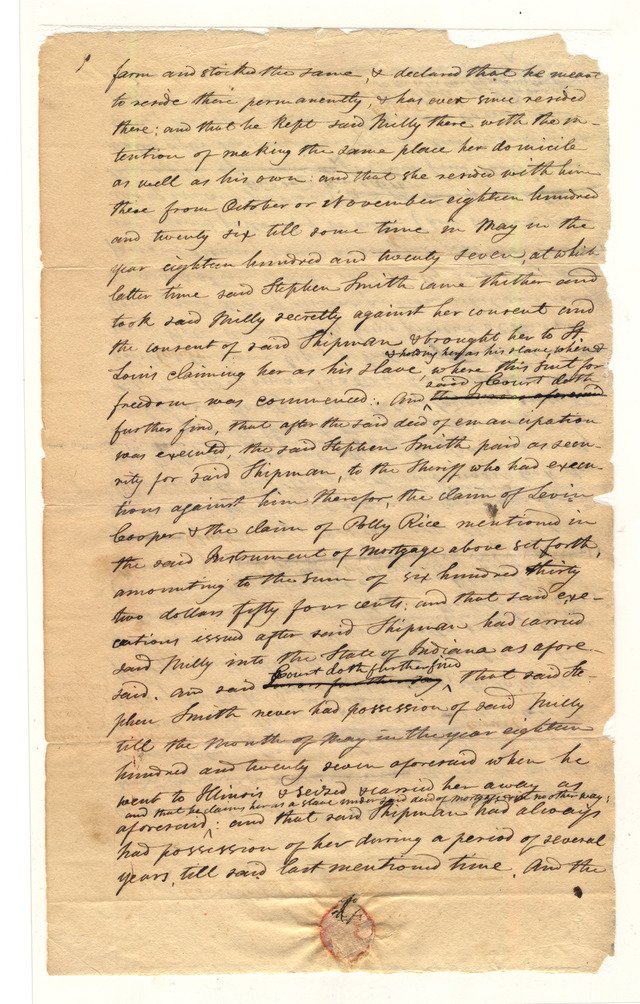 farm and stocked the same, & declared that he meant
to reside there permanently, & has ever since resided
there; and that he kept said Milly there with the in-
tention of making the same place her domicile
as well as his own: and that she resided with him
there from October or November eighteen hundred
and twenty six till some time in May in the
year eighteen hundred and twenty seven, at which
latter time said Stephen Smith came thither and
took said Milly secretly against her consent and
the consent of said Shipman & brought her to St.
& holding her as his slave, where
Louis claiming her as his slave, where this suit for
said Court doth
freedom was commenced. And the jurors aforesaid
further find, that after the said deed of emancipation
was executed, the said Stephen Smith paid as secu-
rity for said Shipman, to the Sheriff who had execu-
tions against him therefor, the claim of Levin
Cooper & the claim of Polly Rice mentioned in
the said Instrument of Mortgage above set forth,
amounting to the sum of six hundred thirty
two dollars fifty four cents; and that said exe-
cutions issued after said Shipman had carried
said Milly into the State of Indiana as afore-
Court doth further find
said. And said jurors further say that said Ste-
phen Smith never had possession of said Milly
till the month of May in the year eighteen
hundred and twenty seven aforesaid when he
went to Illinois & seized & carried her away as
and that he claims her as a slave under said deed of mortgage & in no other way;
aforesaid; and that said Shipman had always
had possession of her during a period of several
years, till said last mentioned time. And the